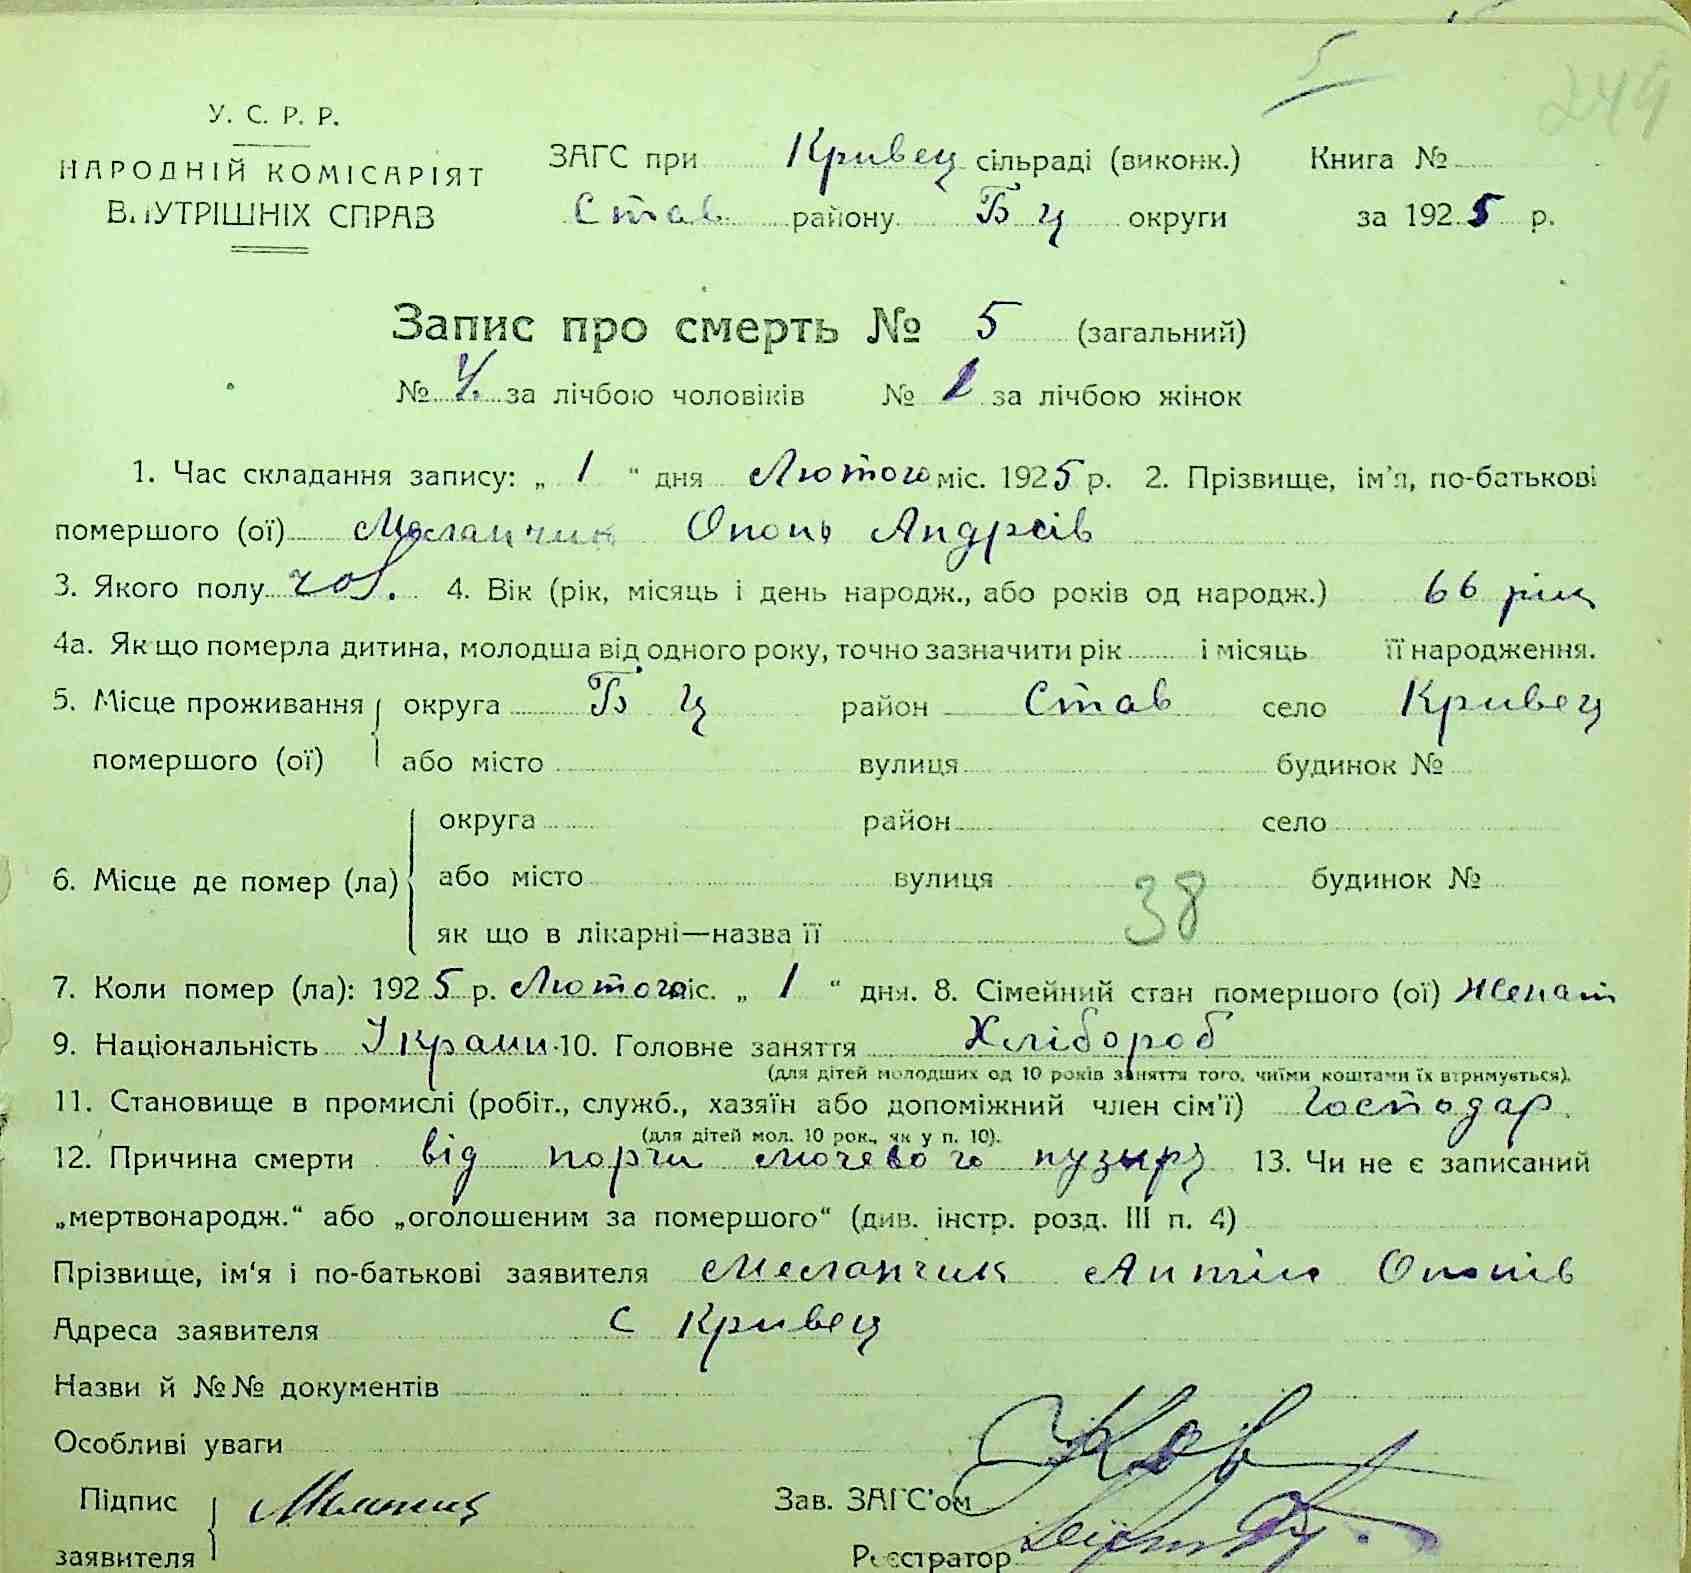 5
249
У. С. Р. Р.
НАРОДНІЙ КОМІСАРІЯТ
ВНУТРІШНІХ СПРАВ
ЗАГС при Кривец сільраді (виконк.) Книга №
Став району Б ц округи за 1925 р.
Запис про смерть № 5 (загальний)
№ 4 за лічбою чоловіків № 1 за лічбою жінок
1. Час складання запису: „ 1 “ дня Лютого міс. 1925 р. 2. Прізвище, ім’я, по-батькові
помершого (ої) Меланчик Опонь Андреів
3. Якого полу чол. 4. Вік (рік, місяць і день народж., або років од народж.) 66 ріц
4а. Як що померла дитина, молодша від одного року, точно зазначити рік і місяць її народження.
5. Місце проживання округа Б ц район Став село Кривец
помершого (ої) або місто вулиця будинок №
округа район село
6. Місце де помер (ла) або місто вулиця будинок №
як що в лікарні—назва її 38
7. Коли помер (ла): 1925 р. Лютого міс. „ 1 “ дня. 8. Сімейний стан помершого (ої) женат
9. Національність Украин 10. Головне заняття Хлібороб
(для дітей молодших од 10 років заняття того, чиїми коштами їх втримується).
11. Становище в промислі (робіт., служб., хазяїн або допоміжний член сім’ї) Господар
(для дітей мол. 10 рок., як у п. 10).
12. Причина смерти від порчи мочевого пузыря 13. Чи не є записаний
„мертвонародж.“ або „оголошеним за помершого“ (див. інстр. розд. III п. 4)
Прізвище, ім‘я і по-батькові заявителя Меланчик Антін Опонів
Адреса заявителя с Кривец
Назви й №№ документів
Особливі уваги
Підпис заявителя Меланчик
Зав. ЗАГС’ом Ков
Реєстратор